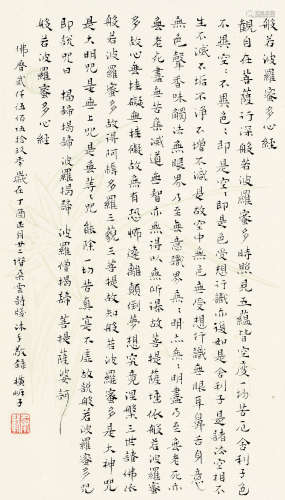 般若波羅蜜多心經
觀自在菩薩行深般若波羅蜜多時照見五蘊皆空度一切苦厄舍利子色
不異空〻不異色〻即是空〻即是色受想行識亦復如是舍利子是諸法空相不
生不滅不垢不淨不增不減是故空中無色無受想行識無眼耳鼻舌身意
無色聲香味觸法無眼界乃至無意識界無〻明亦無〻明盡乃至無老死亦
無老死盡無苦集滅道無智亦無得以無所得故菩提薩埵依般若波羅蜜
多故心無罣礙無罣礙故無有恐怖遠離顛倒夢想究竟涅槃三世諸佛依
般若波羅蜜多故得阿耨多羅三藐三菩提故知般若波羅蜜多是大神咒
是大明咒是無上咒是無等〻咒能除一切苦真實不虛故說般若波羅蜜多咒
即說咒曰 揭諦揭諦 波羅揭諦 波羅僧揭諦 菩提薩婆訶
般若波羅蜜多心經
佛曆貳仟伍佰伍拾玖年歲在丁酉正月廿二 雲 沐手敬錄